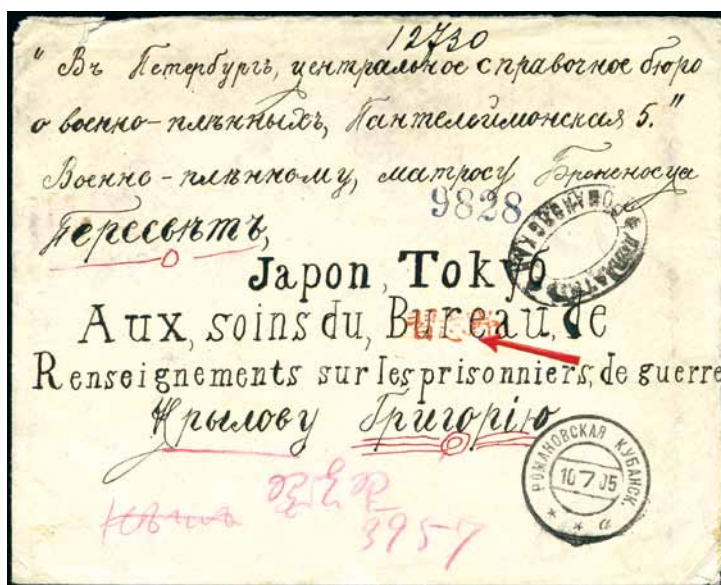 12730
" Въ Петербургъ, центральное справочное бюро
о военно-плѣнныхъ, Пантелеймонская 5."
Военно-плѣнному, матросу Броненосца
9828
Пересвѣтъ,
Japon, Tokyo
Aux, soins du, Bureau, de
習志野
Renseignements sur les prisonniers, de guerre
Крылову Григорію
РОМАНОВСКАЯ КУБАНСК.
10 7 05
* * а
3957